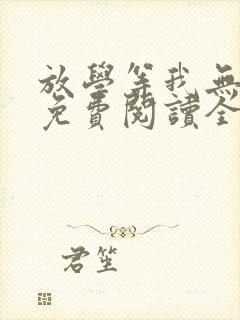 放學等我無
免費閱讀全
君笙